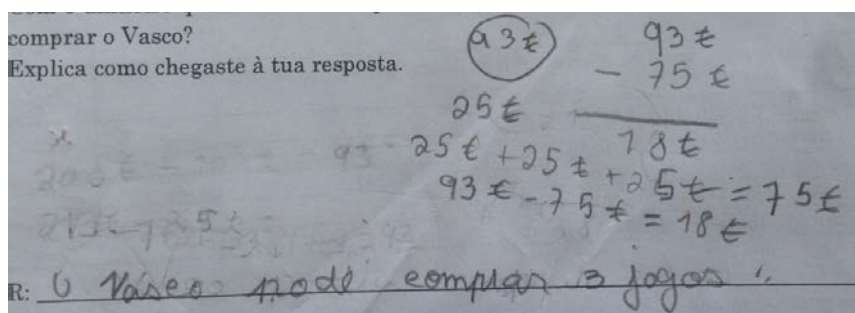 comprar o Vasco?
Explica como chegaste à tua resposta.
93€
93€
- 75€
18€
25€
25€ + 25€ + 25€ = 75€
93€ - 75€ = 18€
R: O Vasco pode comprar 3 jogos